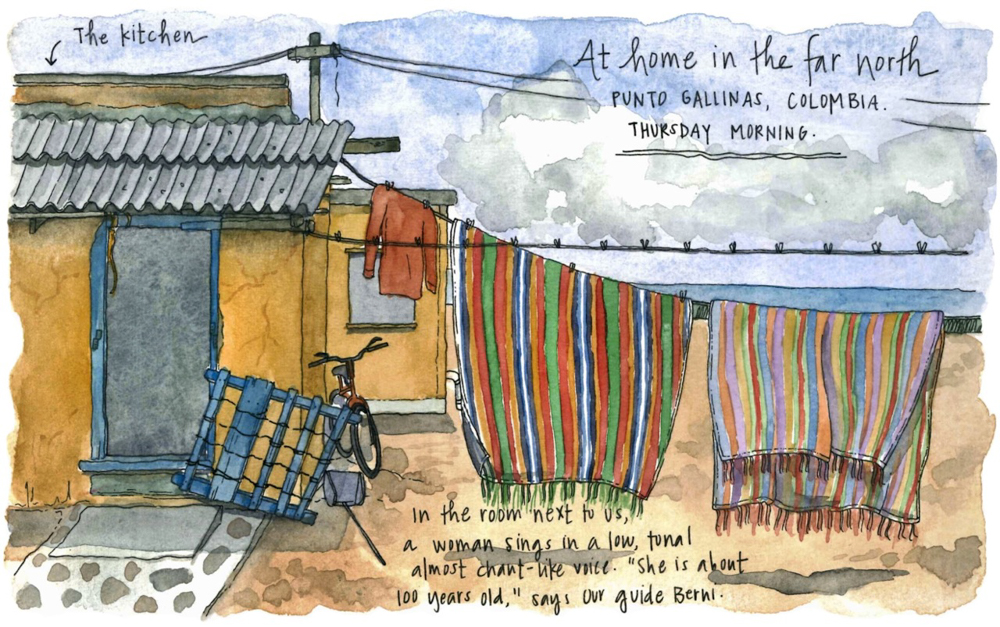 The kitchen
At home in the far north
PUNTO GALLINAS, COLOMBIA.
THURSDAY MORNING.
In the room next to us,
a woman sings in a low, tonal
almost chant-like voice. "She is about
100 years old," says our guide Berni.